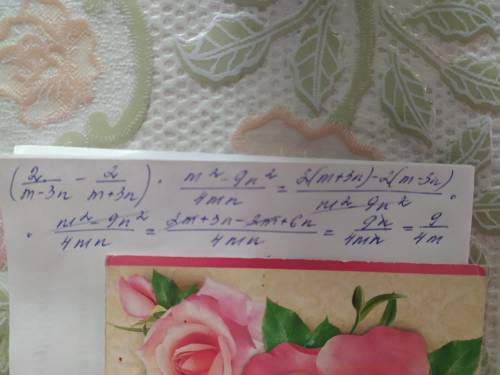 (2/(m-3n) - 2/(m+3n)) · (m²-9n²)/(4mn) = (2(m+3n)-2(m-3n))/(m²-9n²) ·
· (m²-9n²)/(4mn) = (2m+3n-2m+6n)/(4mn) = 9n/(4mn) = 9/(4m)